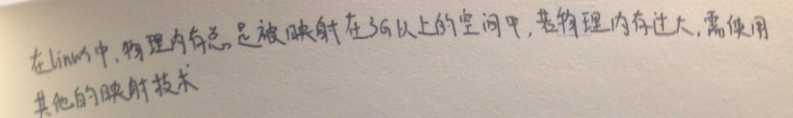 在linux中,物理内存总是被映射在3G以上的空间中,若物理内存过大,需使用
其他的映射技术